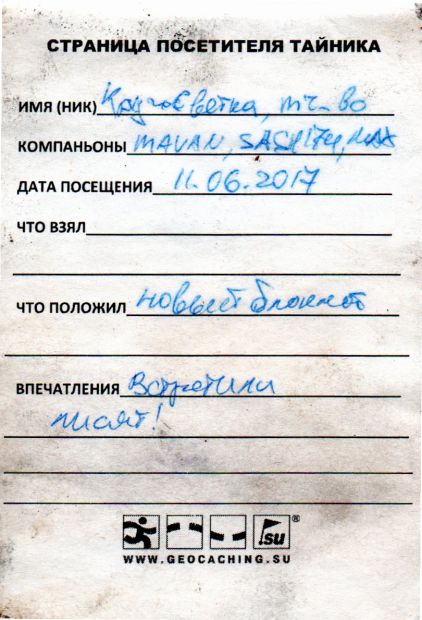 СТРАНИЦА ПОСЕТИТЕЛЯ ТАЙНИКА
ИМЯ (НИК) КругоСветка, тч-во
КОМПАНЬОНЫ MAVAN,
ДАТА ПОСЕЩЕНИЯ 11.06.2017
ЧТО ВЗЯЛ
ЧТО ПОЛОЖИЛ новый блокнот
ВПЕЧАТЛЕНИЯ Встретили
.su®
WWW.GEOCACHING.SU